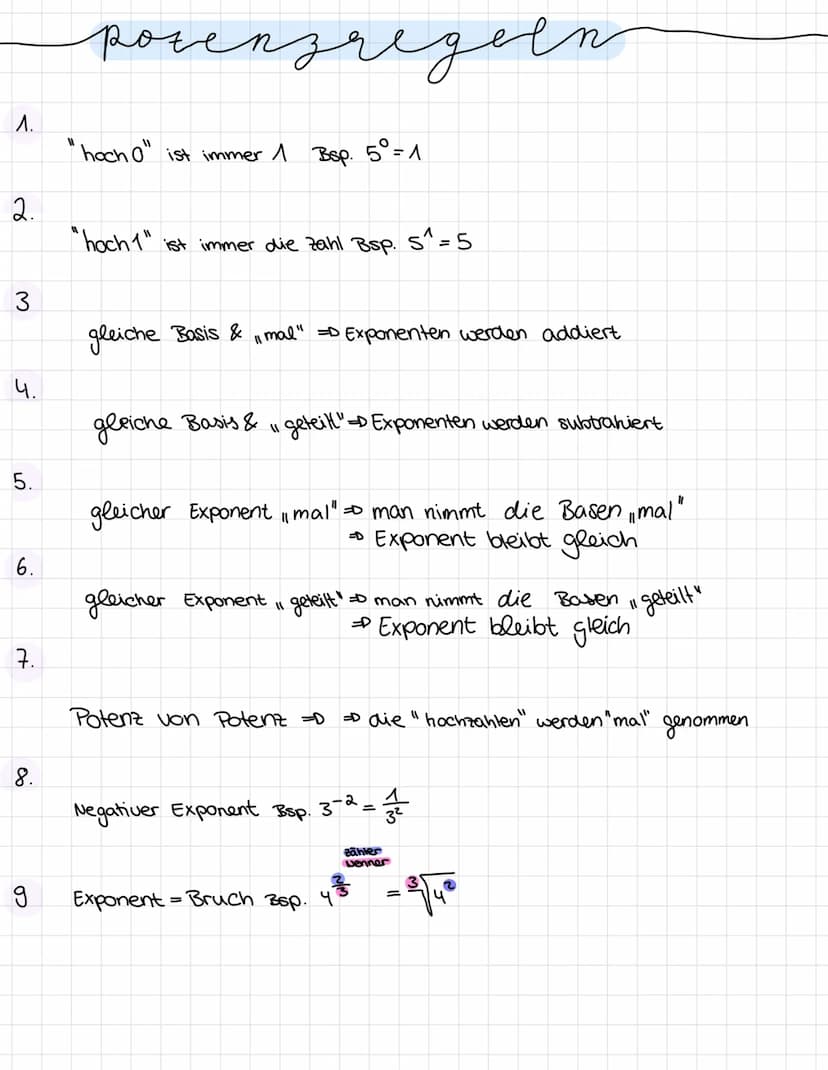 Potenzregeln
1.
"hoch 0" ist immer 1 Bsp. 5⁰ = 1
2.
"hoch 1" ist immer die Zahl Bsp. 5¹ = 5
3
gleiche Basis & „mal" ⇒ Exponenten werden addiert
4.
gleiche Basis & „geteilt" ⇒ Exponenten werden subtrahiert
5.
gleicher Exponent „mal" ⇒ man nimmt die Basen „mal"
⇒ Exponent bleibt gleich
6.
gleicher Exponent „geteilt" ⇒ man nimmt die Basen „geteilt"
⇒ Exponent bleibt gleich
7.
Potenz von Potenz ⇒ ⇒ die "hochzahlen" werden "mal" genommen
8.
Negativer Exponent Bsp. 3⁻² = 1/3²
Zähler
Nenner
9 Exponent = Bruch Bsp. 4^(2/3) = ³√4²